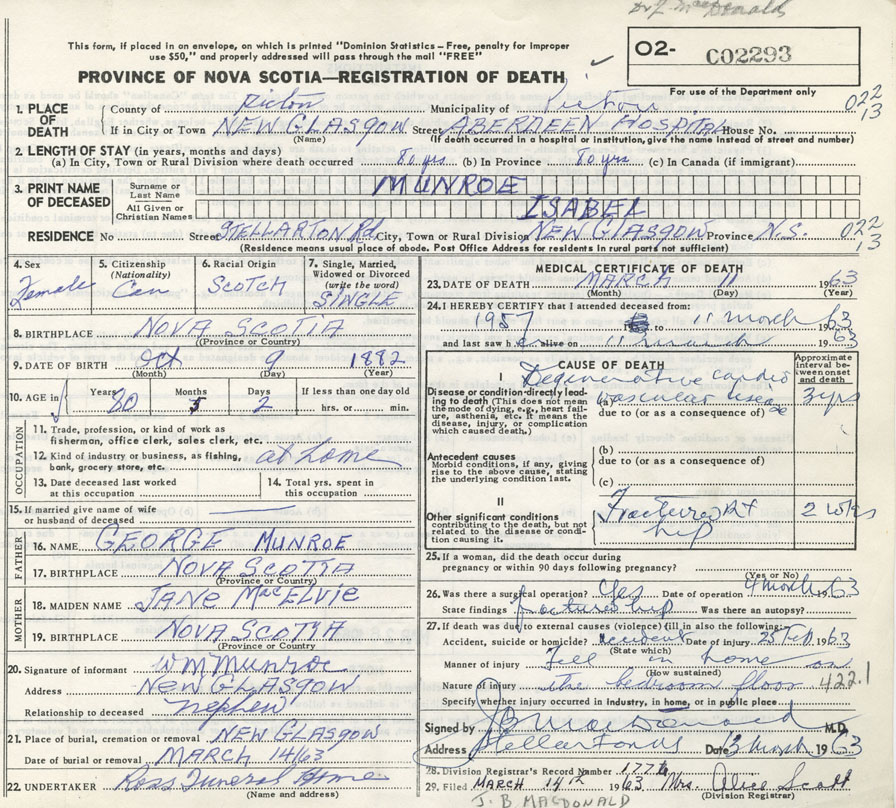 Dr J. MacDonald
This form, if placed in an envelope, on which is printed "Dominion Statistics – Free, penalty for improper
use $50," and properly addressed will pass through the mail "FREE"
PROVINCE OF NOVA SCOTIA—REGISTRATION OF DEATH
O2- C02293
For use of the Department only
022
13
1. PLACE OF DEATH County of Pictou Municipality of Pictou
If in City or Town NEW GLASGOW Street ABERDEEN HOSPITAL House No.
(Name) (If death occurred in a hospital or institution, give the name instead of street and number)
2. LENGTH OF STAY (in years, months and days)
(a) In City, Town or Rural Division where death occurred 80 yrs (b) In Province 80 yrs (c) In Canada (if immigrant)
3. PRINT NAME OF DECEASED Surname or Last Name MUNROE
All Given or Christian Names ISABEL
RESIDENCE No Street STELLARTON Rd City, Town or Rural Division NEW GLASGOW Province N.S.
022
13
(Residence means usual place of abode. Post Office Address for residents in rural parts not sufficient)
4. Sex Female
5. Citizenship (Nationality) Can
6. Racial Origin SCOTCH
7. Single, Married, Widowed or Divorced (write the word) SINGLE
8. BIRTHPLACE NOVA SCOTIA
(Province or Country)
9. DATE OF BIRTH Oct 9 1882
(Month) (Day) (Year)
10. AGE in Years 80 Months 5 Days 2 If less than one day old
hrs. or min.
OCCUPATION
11. Trade, profession, or kind of work as
fisherman, office clerk, sales clerk, etc.
12. Kind of industry or business, as fishing,
bank, grocery store, etc. at home
13. Date deceased last worked
at this occupation
14. Total yrs. spent in
this occupation
15. If married give name of wife
or husband of deceased
FATHER
16. NAME GEORGE MUNROE
17. BIRTHPLACE NOVA SCOTIA
(Province or Country)
MOTHER
18. MAIDEN NAME JANE MacELVIE
19. BIRTHPLACE NOVA SCOTIA
(Province or Country)
20. Signature of informant Wm Munroe
Address NEW GLASGOW
Relationship to deceased nephew
21. Place of burial, cremation or removal NEW GLASGOW
Date of burial or removal MARCH 14/63
22. UNDERTAKER Ross Funeral Home
(Name and address)
MEDICAL CERTIFICATE OF DEATH
23. DATE OF DEATH MARCH 11 1963
(Month) (Day) (Year)
24. I HEREBY CERTIFY that I attended deceased from:
1957 to 11 march 1963
and last saw h alive on 11 march 1963
CAUSE OF DEATH
Approximate interval between onset and death
I
Disease or condition directly leading to death (This does not mean the mode of dying, e.g., heart failure, asthenia, etc. It means the disease, injury, or complication which caused death.)
(a) Degenerative cardio vascular disease 3 yrs
due to (or as a consequence of)
Antecedent causes
Morbid conditions, if any, giving rise to the above cause, stating the underlying condition last.
(b)
due to (or as a consequence of)
(c)
II
Other significant conditions contributing to the death, but not related to the disease or condition causing it.
Fractured Rt hip 2 wks
25. If a woman, did the death occur during
pregnancy or within 90 days following pregnancy?
(Yes or No)
26. Was there a surgical operation? Yes Date of operation 4 march 1963
State findings fractured hip Was there an autopsy?
27. If death was due to external causes (violence) fill in also the following:
Accident, suicide or homicide? Accident Date of injury 25 Feb 1963
(State which)
Manner of injury Fell in home on
(How sustained)
Nature of injury the bedroom floor 422.1
Specify whether injury occurred in industry, in home, or in public place
Signed by J B MacDonald M.D.
Address Stellarton NS Date 13 March 1963
28. Division Registrar's Record Number 177
29. Filed MARCH 14th 1963 Mrs. Alice Scott
(Division Registrar)
J. B. MACDONALD